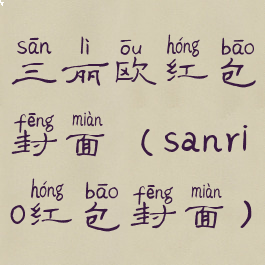 sān lì ōu hóng bāo
三丽欧红包
fēng miàn
封面（sanri
hóng bāo fēng miàn
o红包封面）